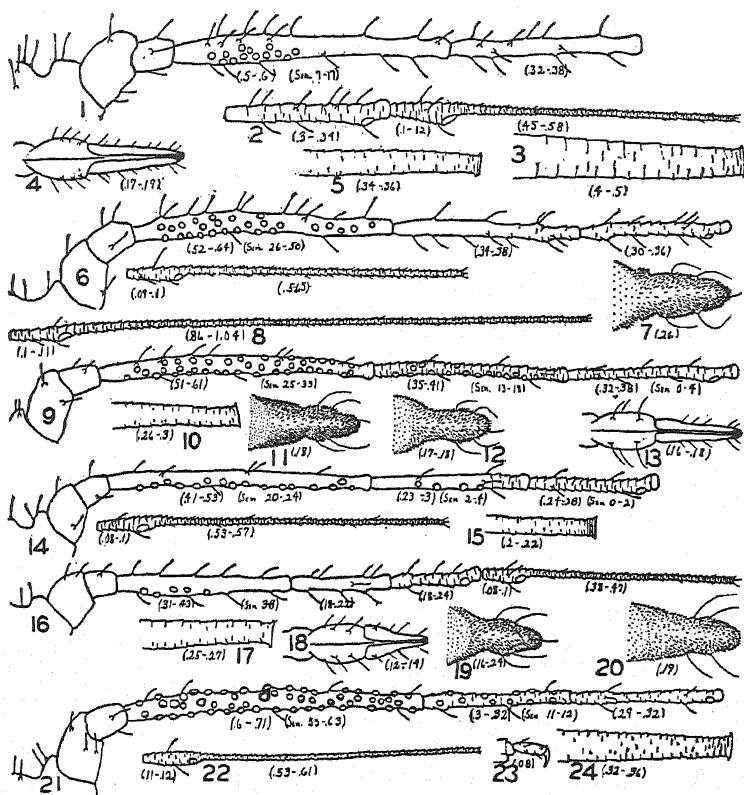 (.5-.6) (Sen. 9-17) (.32-.38)
1
2 (.3-.34) (.1-12) (.45-.58)
4 (.17-.19) 5 (.34-.36) 3 (.4-.5)
6 (.52-.64) (Sen. 26-.50) (.34-.38) (.30-.36)
(.09-.1) (.565) 7 (.26)
(.1-.11) (.86-1.04) 8
9 (.51-.61) (Sen 25-33) (.35-.41) (Sen. 13-18) (.32-.38) (Sen 0-4)
10 (.26-.3) 11 (.18) 12 (.17-.18) 13 (.16-.18)
14 (.41-.53) (Sen. 20-24) (.23-.3) (Sen 2-4) (.24-.28) (Sen 0-2)
(.08-.1) (.53-.57) 15 (.2-.22)
16 (.31-43) (.18-.24) (.08-.1) (.38-.47)
17 (.25-.27) 18 (.12-.14) 19 (.16-.24) 20 (.19)
21 (.6-.71) (.3-.32) (Sen 11-12) (.29-.32)
(.11-.12) 22 (.53-.61) 23 (.08) 24 (.32-.36)